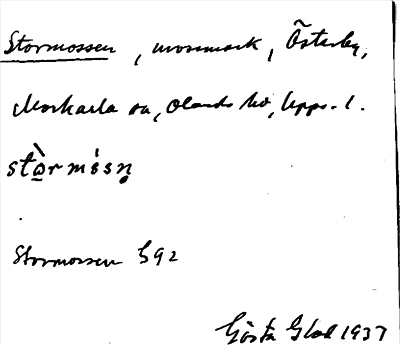 Stormossen, mossmark, Österby,
Morkarla sn, Olands hd, Upps. l.
stòrmósn̥
Stormossen G92
Gösta Glad 1937